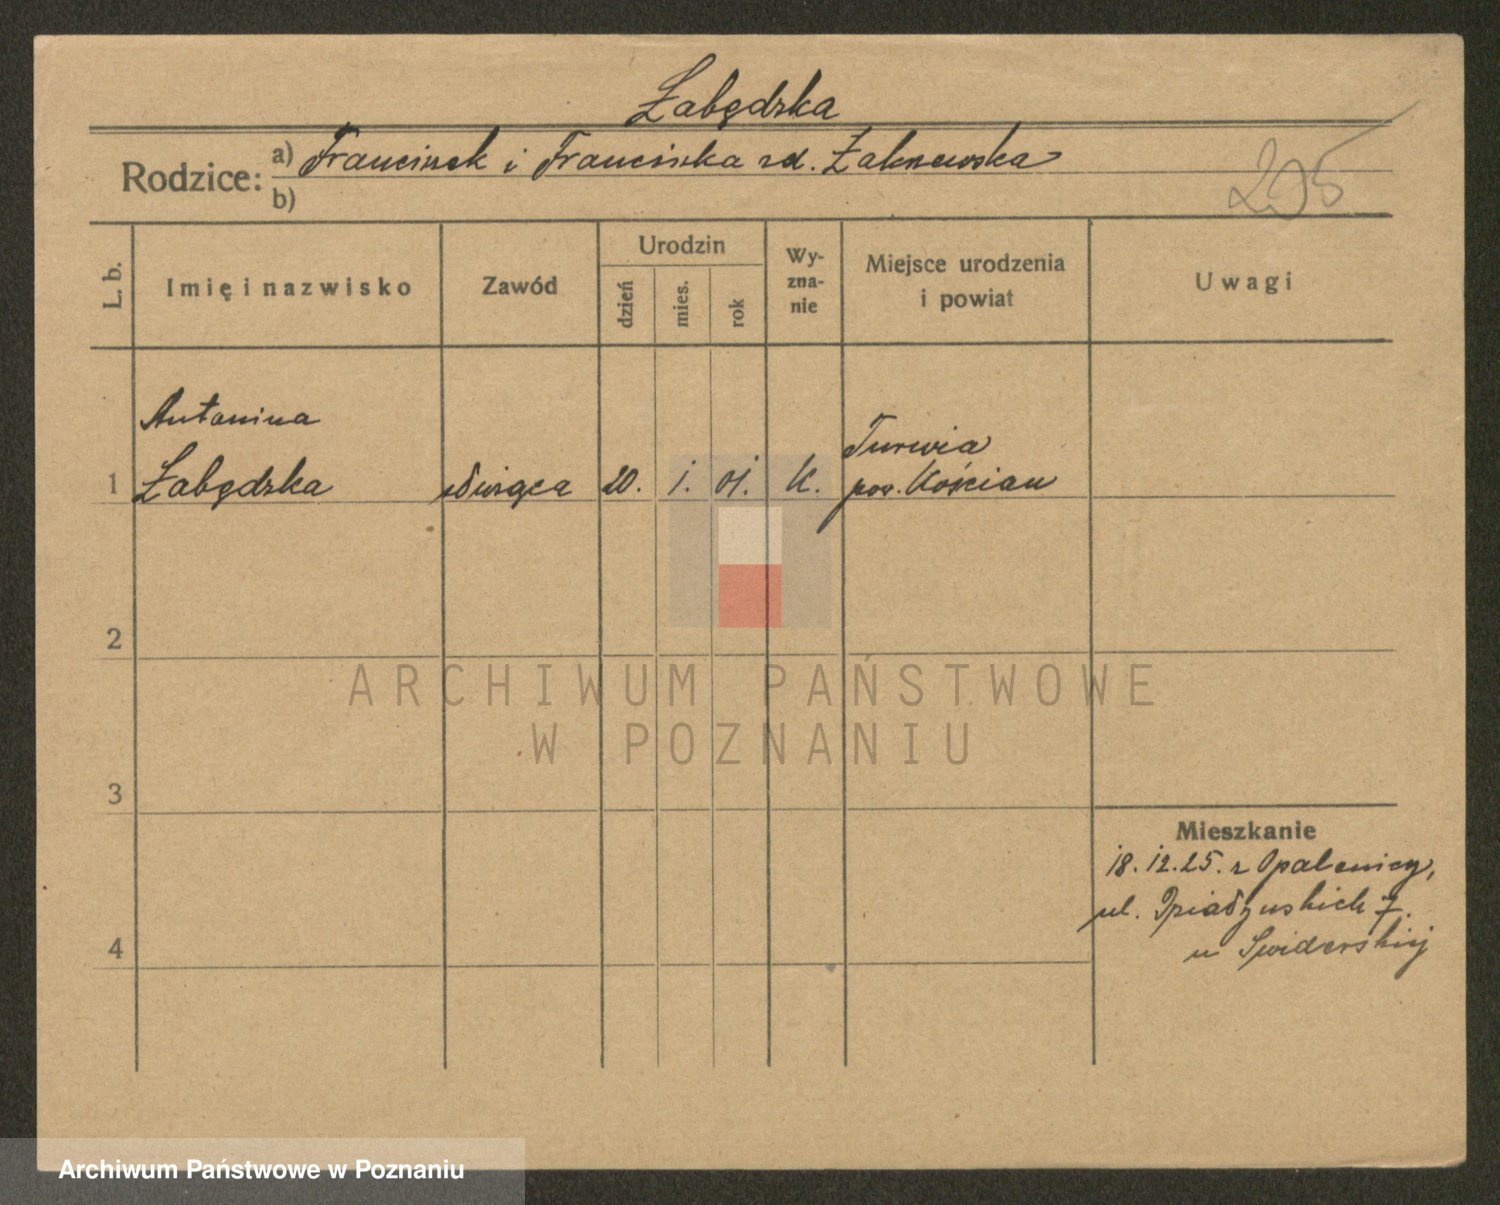 Łabędzka
Rodzice: a) Franciszek i Franciszka zd.
b)
295
L. b.
Imię i nazwisko
Zawód
Urodzin
dzień
mies.
rok
Wy-
zna-
nie
Miejsce urodzenia
i powiat
Uwagi
Antonina
1 Łabędzka
służąca
20. 1. 01. K.
Turwia
pow. Kościan
2
3
4
Mieszkanie
18.12.25. z Opalenicy,
ul. 7.
u Swiderskiej
ARCHIWUM PAŃSTWOWE
W POZNANIU
Archiwum Państwowe w Poznaniu